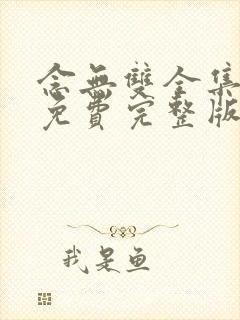 念無雙全集
免費完整版
我是鱼